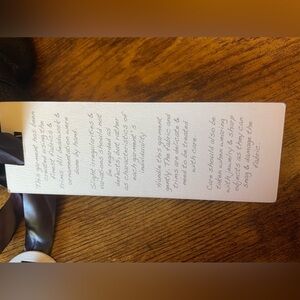 This garment has been
constructed using the
finest fabrics &
trims. Beading, beadwork &
ornamentation were
done by hand.
Slight irregularities &
variations should not
be regarded as
defects, but rather
as characteristics of
each garment's
individuality.
Handle this garment
gently. The fabric and
trims are delicate &
need to be treated
with care.
Care should also be
taken when wearing
with jewelry & sharp
objects as they can
snag & damage the
fabric.